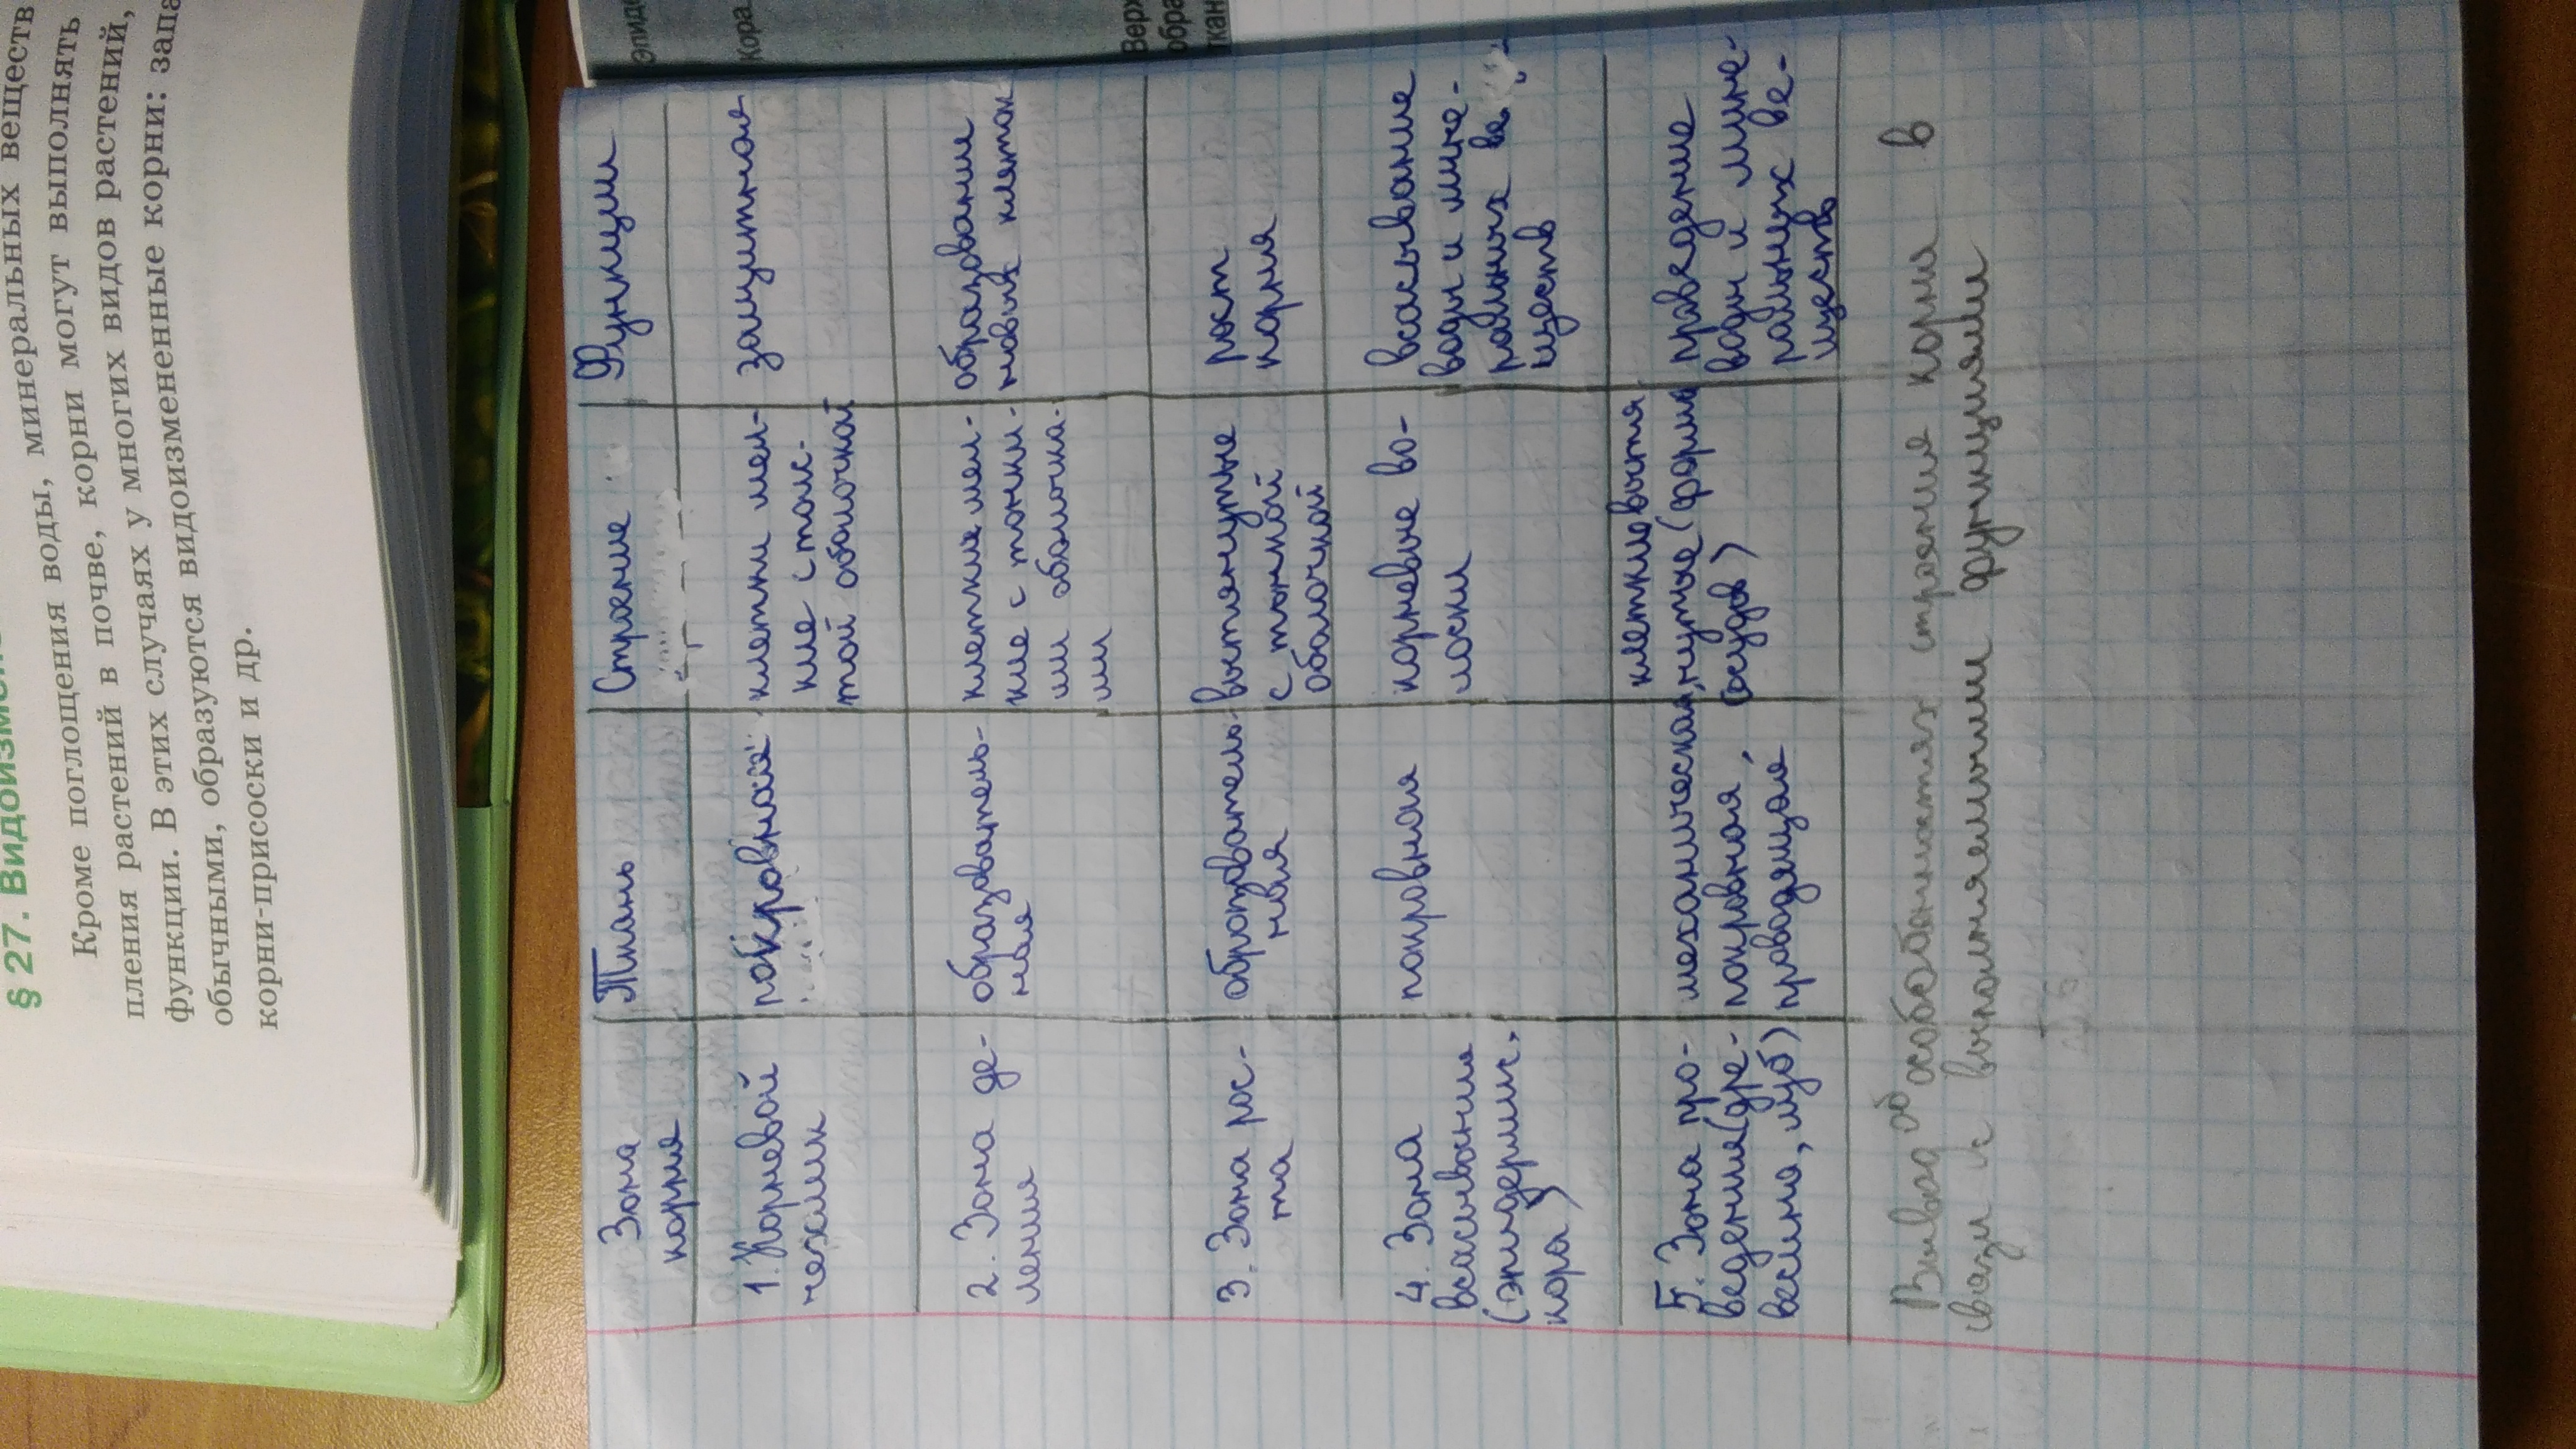 § 27. Видоизмене
Кроме поглощения воды, минеральных веществ
пления растений в почве, корни могут выполнять
функции. В этих случаях у многих видов растений,
обычными, образуются видоизмененные корни: запа
корни-присоски и др.
Эпиде
Кора
Верх
обра
ткан
Зона
корня
Ткань
Строение
Функции
1. Корневой
чехлик
покровная
клетки мел-
кие с толс-
той оболочкой
защитная
2. Зона де-
ления
образователь-
ная
клетки мел-
кие с тонки-
ми оболочка-
ми
образование
новых клеток
3. Зона рос-
та
образователь-
ная
вытянутые
с тонкой
оболочкой
рост
корня
4. Зона
всасывания
(эпидермис,
кора)
покровная
корневые во-
лоски
всасывание
воды и мине-
ральных ве
ществ
5. Зона про-
ведения(дре-
весина, луб)
механическая,
покровная,
проводящая
клетки вытя
нутые (форма
сосудов)
проведение
воды и мине-
ральных ве-
ществ
Вывод об особенностях строения корня в
связи с выполняемыми функциями